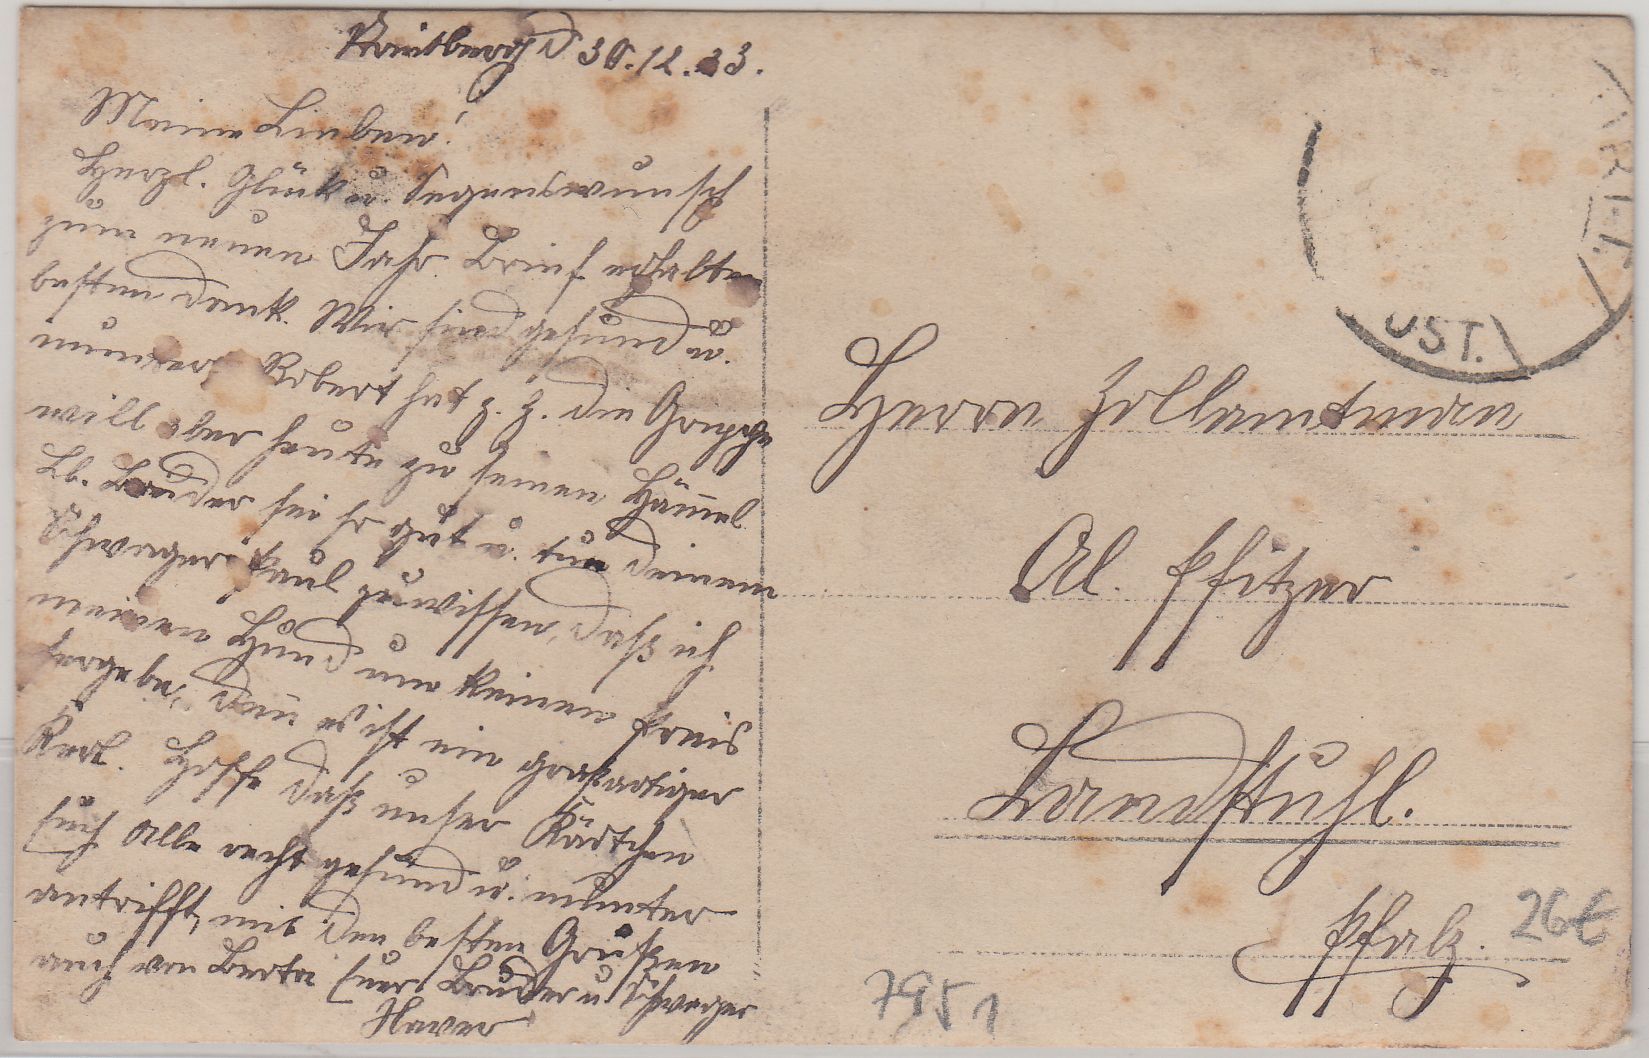 d. 30.12.33.
Meine Lieben!
Herzl. Glück u. Segenswunsch
zum neuen Jahr. Brief erhalten
besten Dank. Wir sind gesund u.
munter. Robert hat z. Z. die Grippe
will aber heute zu seinen Hämmel
Lb. Bruder sei so gut u. tue deinem
Schwager Paul zu wissen, daß ich
meinen Hund um keinen Preis
hergebe, denn es ist ein großartiger
Kerl. Hoffe daß unser Kärtchen
Euch Alle recht gesund u. munter
antrifft, mit den besten Grüßen
auch von Berta Euer Bruder u Schwager
Xaver
Herrn Zollamtman
Al. Pfitzer
Landstuhl.
Pfalz.
UST.
26€
7951